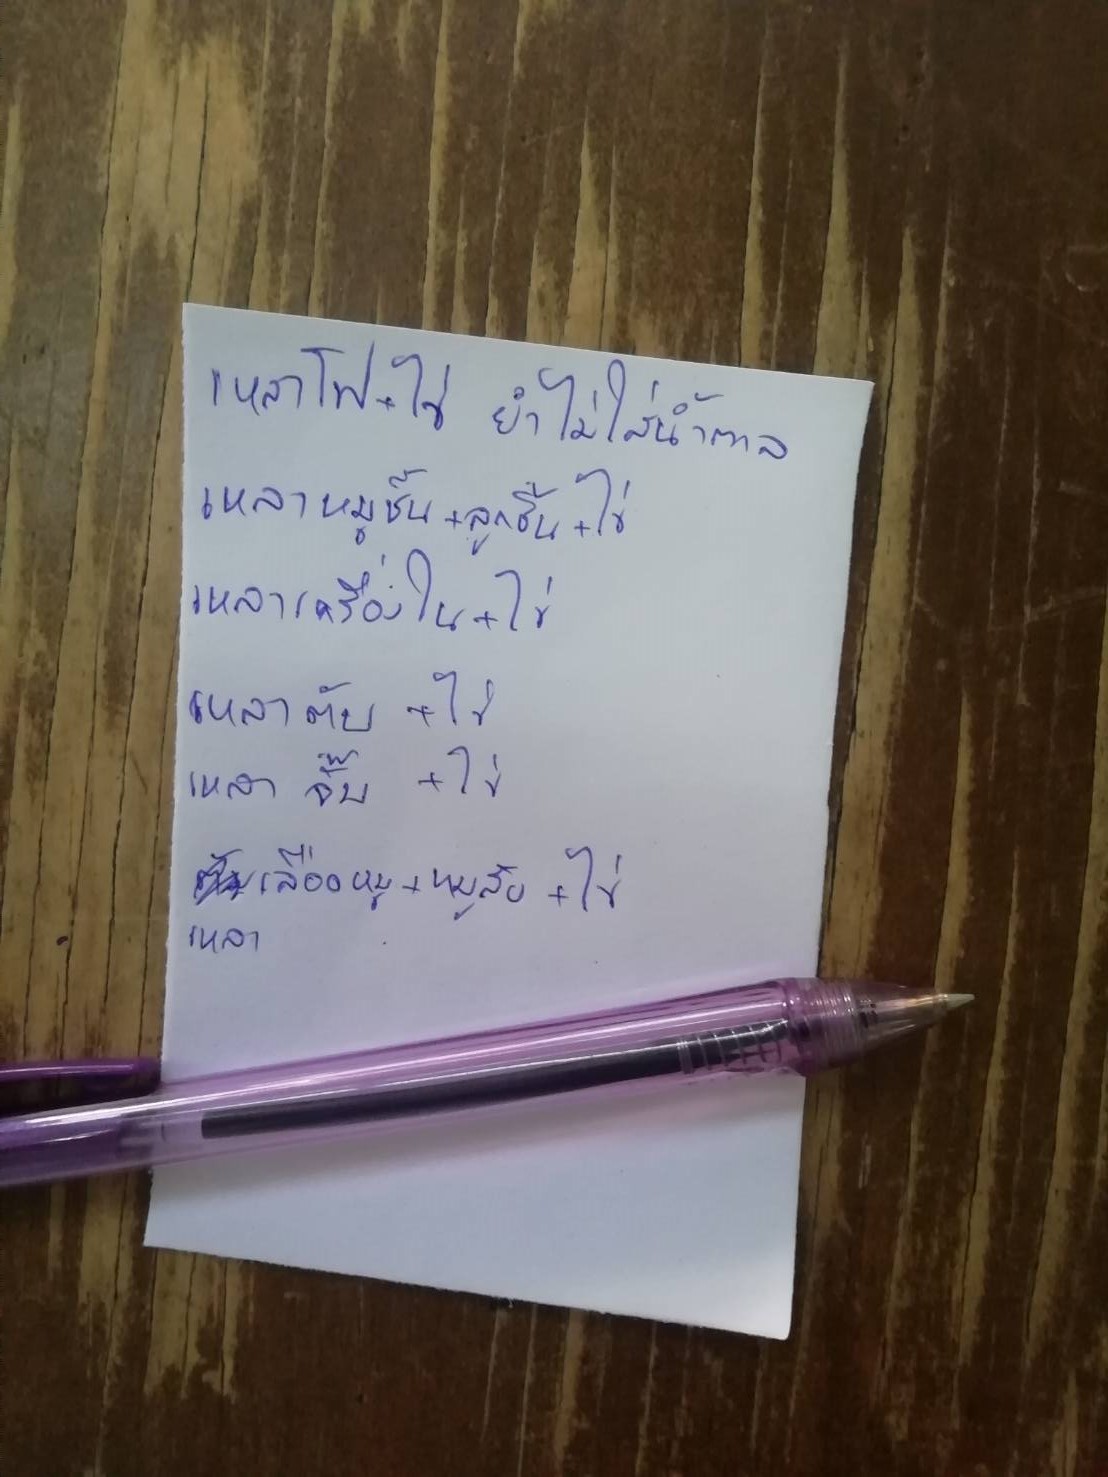 เหลาโฟ+ไข่ ยำไม่ใส่น้ำตาล
เหลาหมูชิ้น+ลูกชิ้น+ไข่
เหลาเครื่องใน+ไข่
เหลา ตับ +ไข่
เหลา จั๊บ +ไข่
เลือดหมู+หมูสับ+ไข่
เหลา